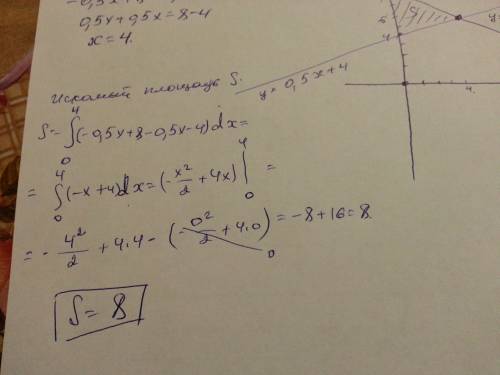 0,5x+0,5x=8-4
x=4.
Искомый площадь S.
S=∫₀⁴(-0,5x+8-0,5x-4)dx=
=∫₀⁴(-x+4)dx=(-x²/2+4x)|₀⁴=
=-4²/2+4·4-(-0²/2+4·0)=-8+16=8
0
S=8
S
4
4
y=0,5x+4